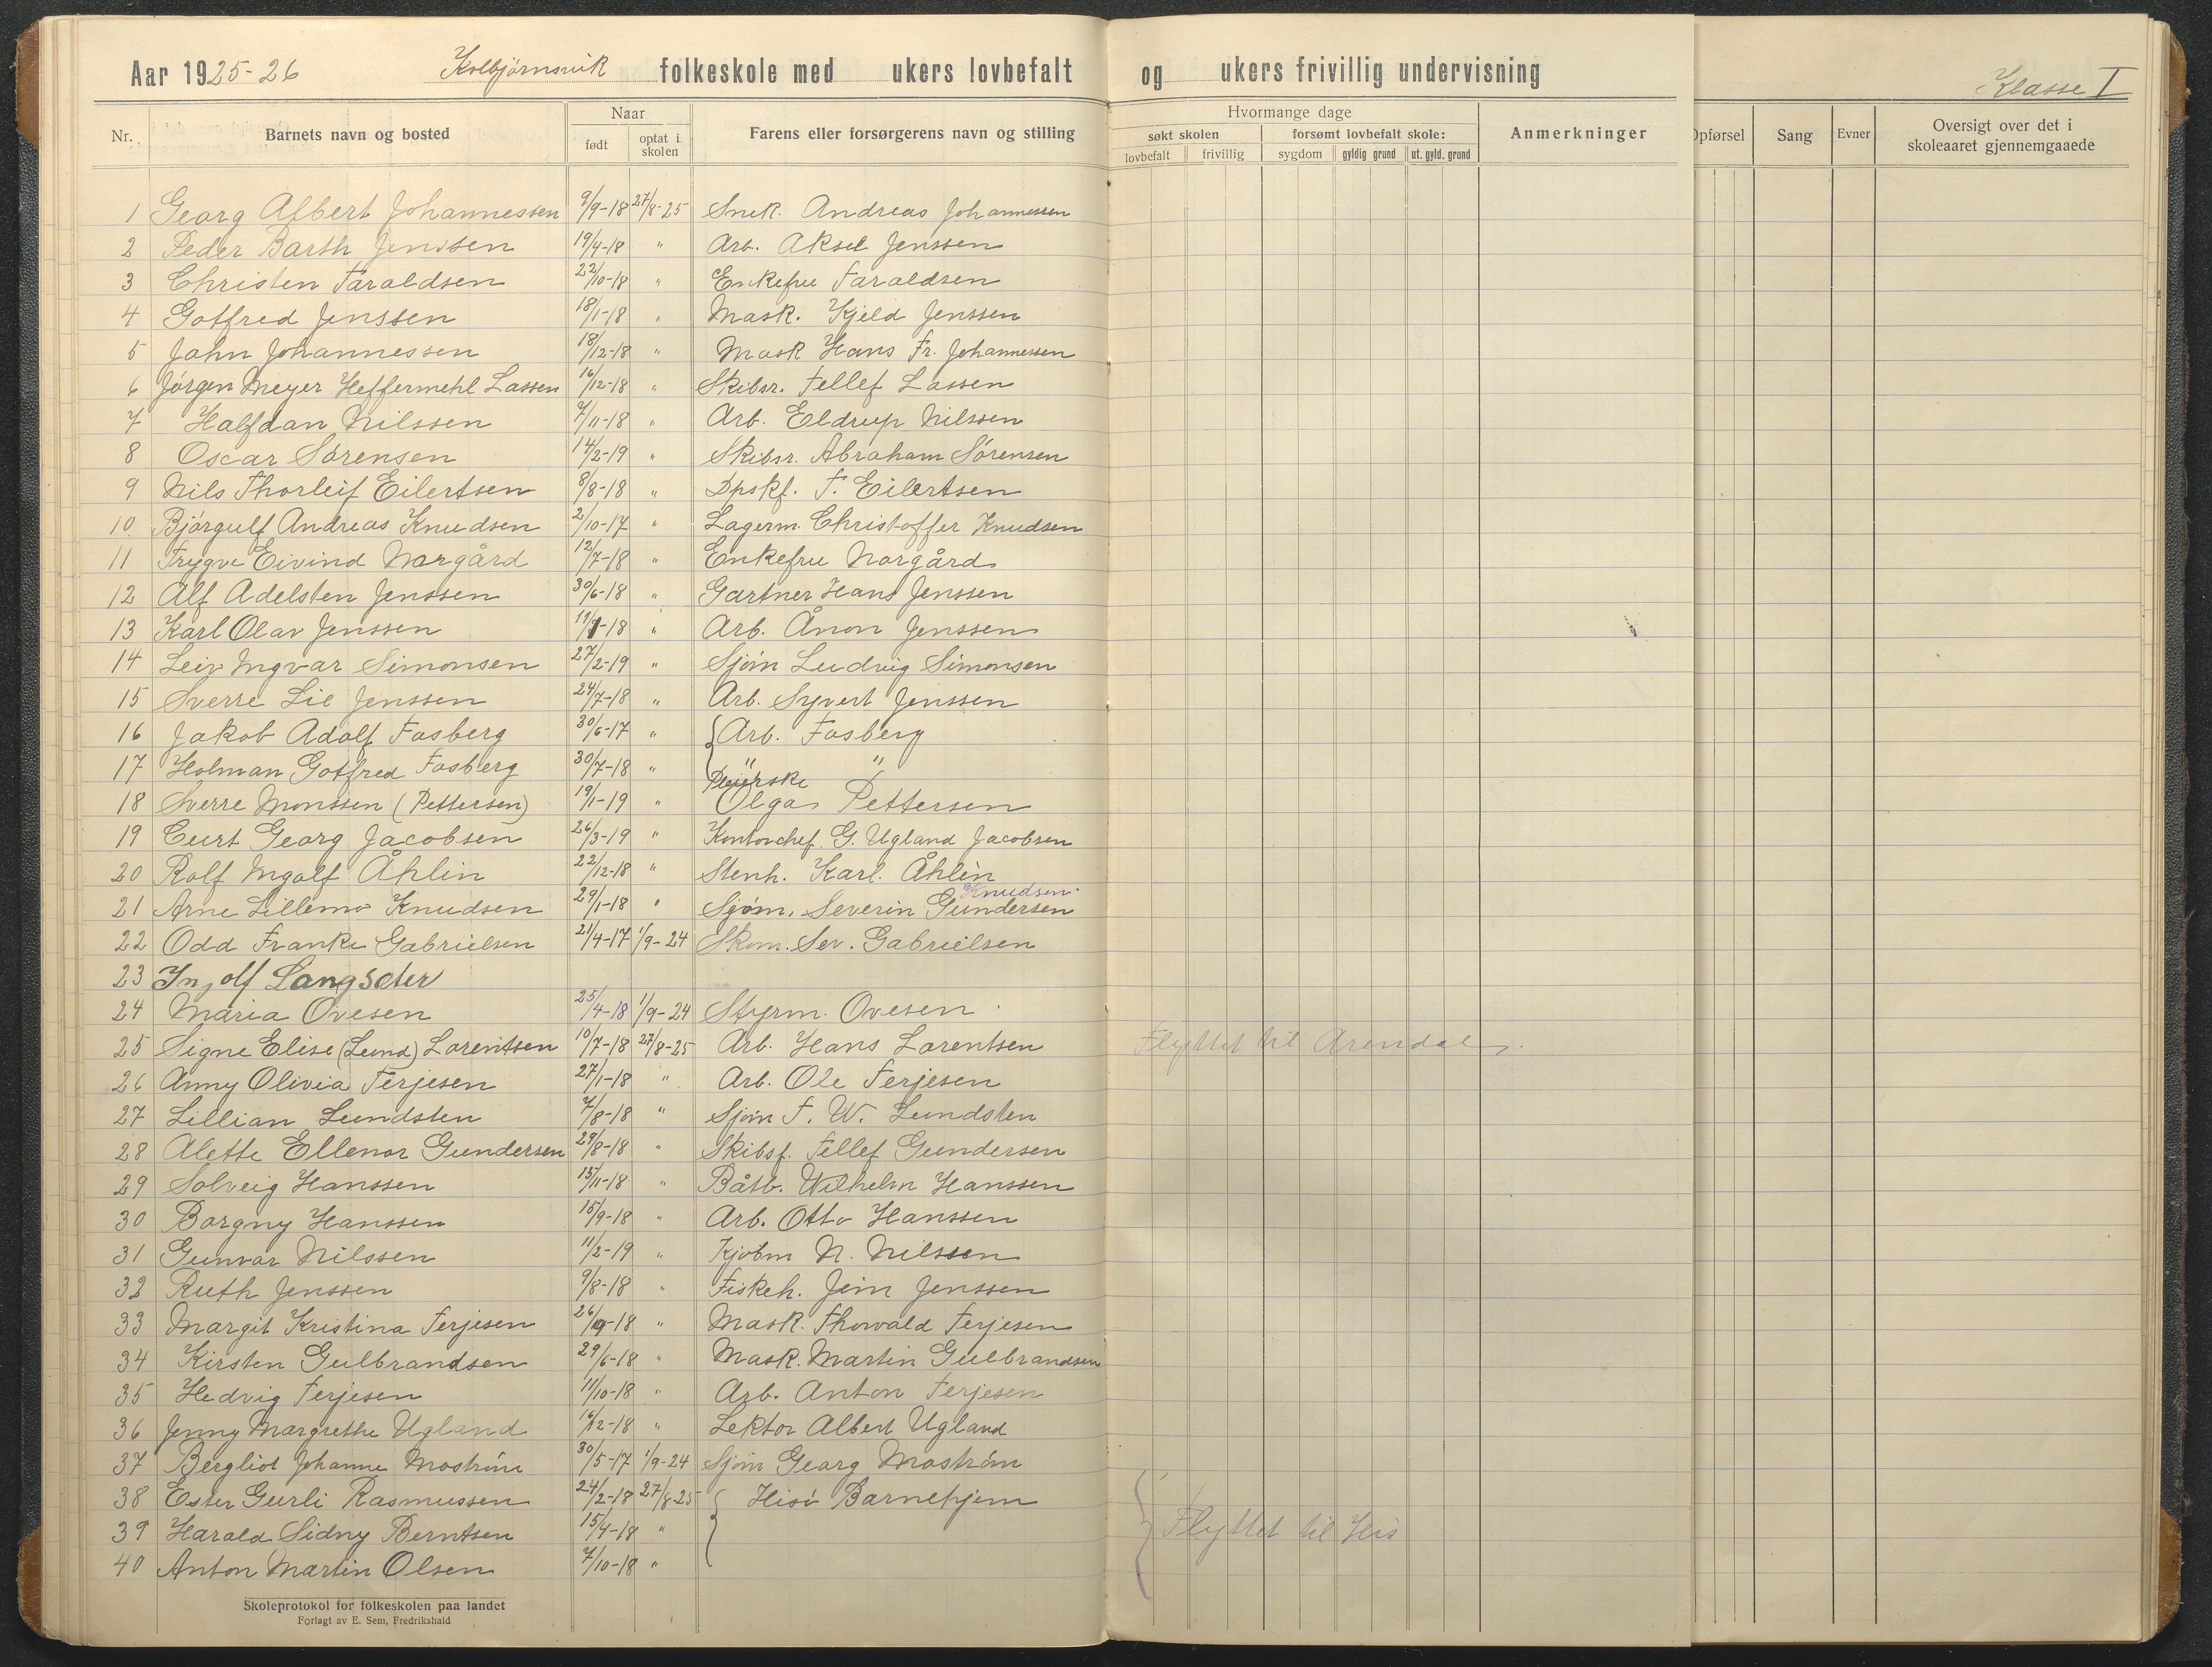 Aar 1925-26 Kolbjørnsvik folkeskole med ukers lovbefalt og ukers frivillig undervisning Klasse I
Nr. Barnets navn og bosted Naar født optat i skolen Farens eller forsørgerens navn og stilling Hvormange dage søkt skolen lovbefalt frivillig forsømt lovbefalt skole: sygdom gyldig grund ut. gyld. grund Anmerkninger Opførsel Sang Evner Oversigt over det i skoleaaret gjennemgaaede
1 Georg Albert Johannessen 9/9-18 27/8-25 Snek. Andreas Johannessen
2 Peder Barth Jenssen 19/4-18 " Arb. Aksel Jenssen
3 Christen Taraldsen 22/10-18 " Enkefru Taraldsen
4 Gotfred Jenssen 18/1-18 " Mask. Kjeld Jenssen
5 John Johannessen 18/12-18 " Mask Hans Fr. Johannessen
6 Jørgen Meyer Heffermehl Lassen 16/12-18 " Skibsr. Tellef Lassen
7 Halfdan Nilssen 7/11-18 " Arb. Eldrup Nilssen
8 Oscar Sørensen 14/2-19 " Skibsr. Abraham Sørensen
9 Nils Thorleif Eilertsen 8/8-18 " Dpskf. T. Eilertsen
10. Bjørgulf Andreas Knudsen 2/10-17 " Lagerm. Christoffer Knudsen
11 Trygve Eivind Norgård 12/7-18 " Enkefru Norgård
12 Alf Adelsten Jenssen 30/6-18 " Gartner Hans Jenssen
13 Karl Olav Jenssen 19/1-18 " Arb. Ånon Jenssen
14 Leiv Ingvar Simonsen 27/2-19 " Sjøm Ludvig Simonsen
15 Sverre Lie Jenssen 24/7-18 " Arb. Syvert Jenssen
16 Jakob Adolf Fosberg 30/6-17 " { Arb. Fosberg
17 Holman Gotfred Fosberg 30/7-18 " " "
18 Sverre Monssen (Pettersen) 19/1-19 " Pleierske Olga Pettersen
19 Curt Georg Jacobsen 26/3-19 " Kontorchef G. Ugland Jacobsen
20 Rolf Ingolf Åhlin 22/12-18 " Stenh. Karl. Åhlin
21 Arne Lillemo Knudsen 29/1-18 " Sjøm. Severin Gundersen Knudsen
22 Odd Franke Gabrielsen 21/4-17 1/9-24 Skom. Sev. Gabrielsen
23 Ingolf Langseter
24 Maria Ovesen 25/4-18 1/9-24 Styrm. Ovesen
25 Signe Elise (Lund) Lorentsen 10/7-18 27/8-25 Arb. Hans Lorentsen Flyttet til Arendal.
26 Anny Olivia Terjesen 27/1-18 " Arb. Ole Terjesen
27 Lillian Lundsten 7/8-18 " Sjøm T. W. Lundsten
28 Alette Ellenor Gundersen 29/8-18 " Skibsf. Tellef Gundersen
29 Solveig Hanssen 15/11-18 " Båtb. Wilhelm Hanssen
30 Borgny Hanssen 15/9-18 " Arb. Otto Hanssen
31 Gunvor Nilssen 11/2-19 " Kjøbm N. Nilssen
32 Ruth Jenssen 9/8-18 " Fiskeh. Jein Jenssen
33 Margit Kristina Terjesen 26/9-18 " Mask. Thorvald Terjesen
34 Kirsten Gulbrandsen 29/6-18 " Mask. Martin Gulbrandsen
35 Hedvig Terjesen 11/10-18 " Arb. Anton Terjesen
36 Jenny Margrethe Ugland 16/12-18 " Lektor Albert Ugland
37 Bergliot Johanne Mostrøm 30/5-17 1/9-24 Sjøm Georg Mostrøm
38 Ester Gurli Rasmussen 24/2-18 27/8-25 { Hisø Barnehjem
39 Harald Sidny Berntsen 15/4-18 " { Flyttet til His
40 Anton Martin Olsen 7/10-18 "
Skoleprotokol for folkeskolen paa landet
Forlagt av E. Sem, Fredrikshald